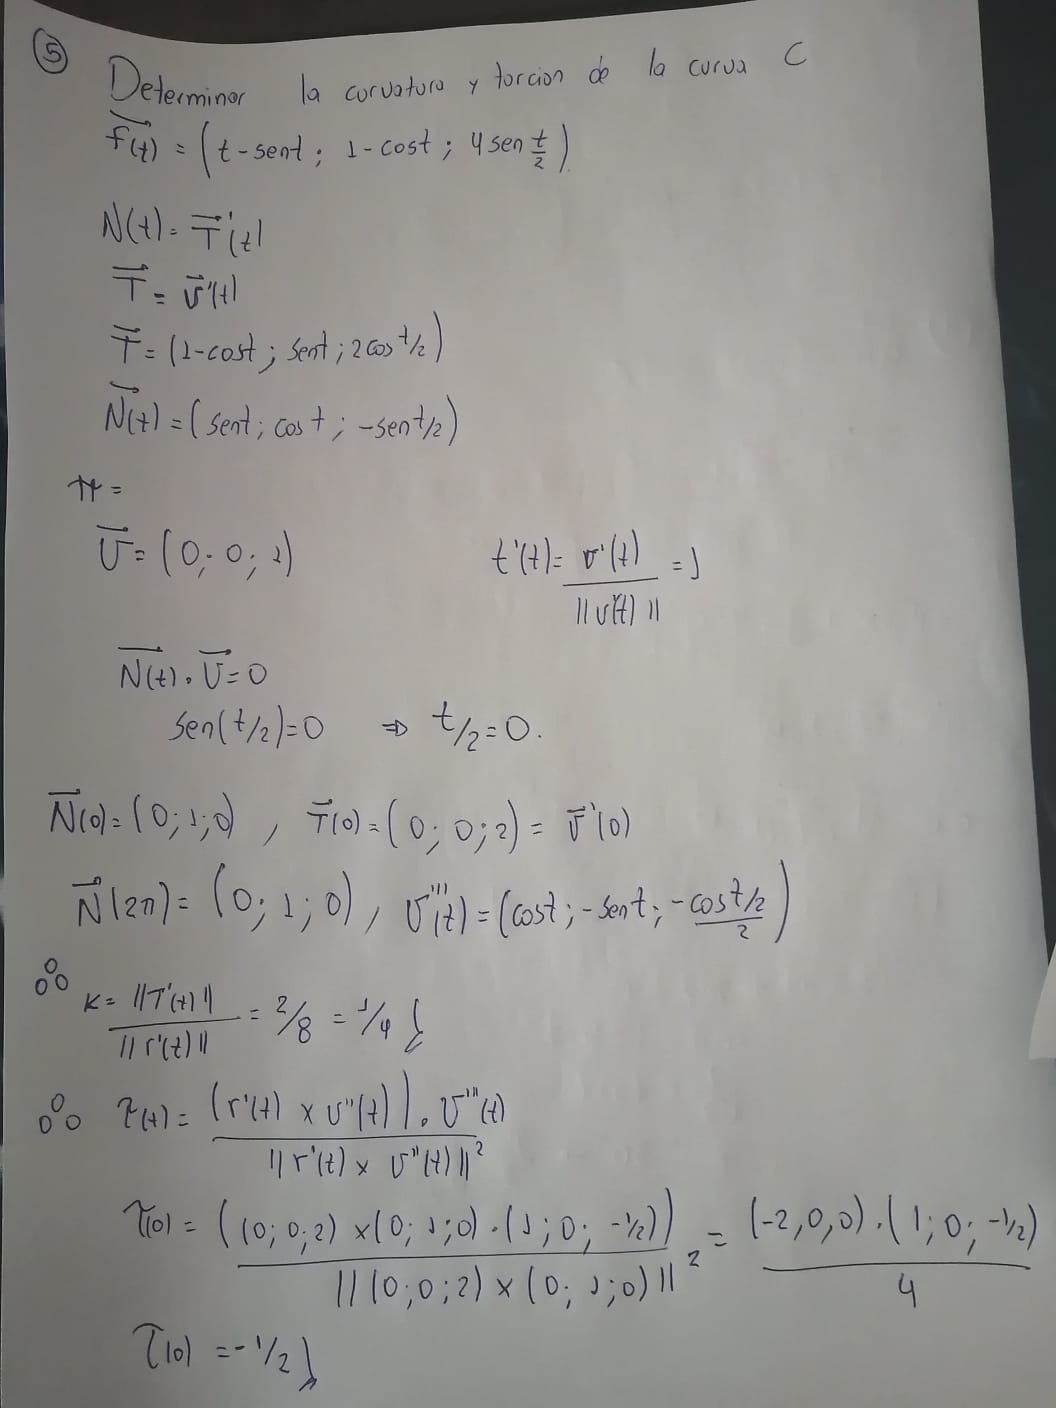 5
Determinar la curvatura y torcion de la curva C
f(t) = (t-sent; 1-cost; 4sen t/2)
N(t) = T'(t)
T = v'(t)
T = (1-cost; sent; 2cos t/2)
N(t) = (sent; cost; -sen t/2)
π =
U = (0; 0; 1)
t'(t) = v'(t) / ||v'(t)|| = 1
N(t) . U = 0
sen(t/2) = 0 ⇒ t/2 = 0.
N(0) = (0; 1; 0) , T(0) = (0; 0; 2) = v'(0)
N(2π) = (0; 1; 0) , v'''(t) = (cost; -sent; -cos t/2 / 2)
∴ K = ||T'(t)|| / ||r'(t)|| = 2/8 = 1/4
∴ τ(t) = (r'(t) x v''(t)) . v'''(t) / ||r'(t) x v''(t)||²
τ(0) = ((0; 0; 2) x (0; 1; 0) . (1; 0; -1/2)) / ||(0; 0; 2) x (0; 1; 0)||² = (-2, 0, 0) . (1; 0; -1/2) / 4
τ(0) = -1/2